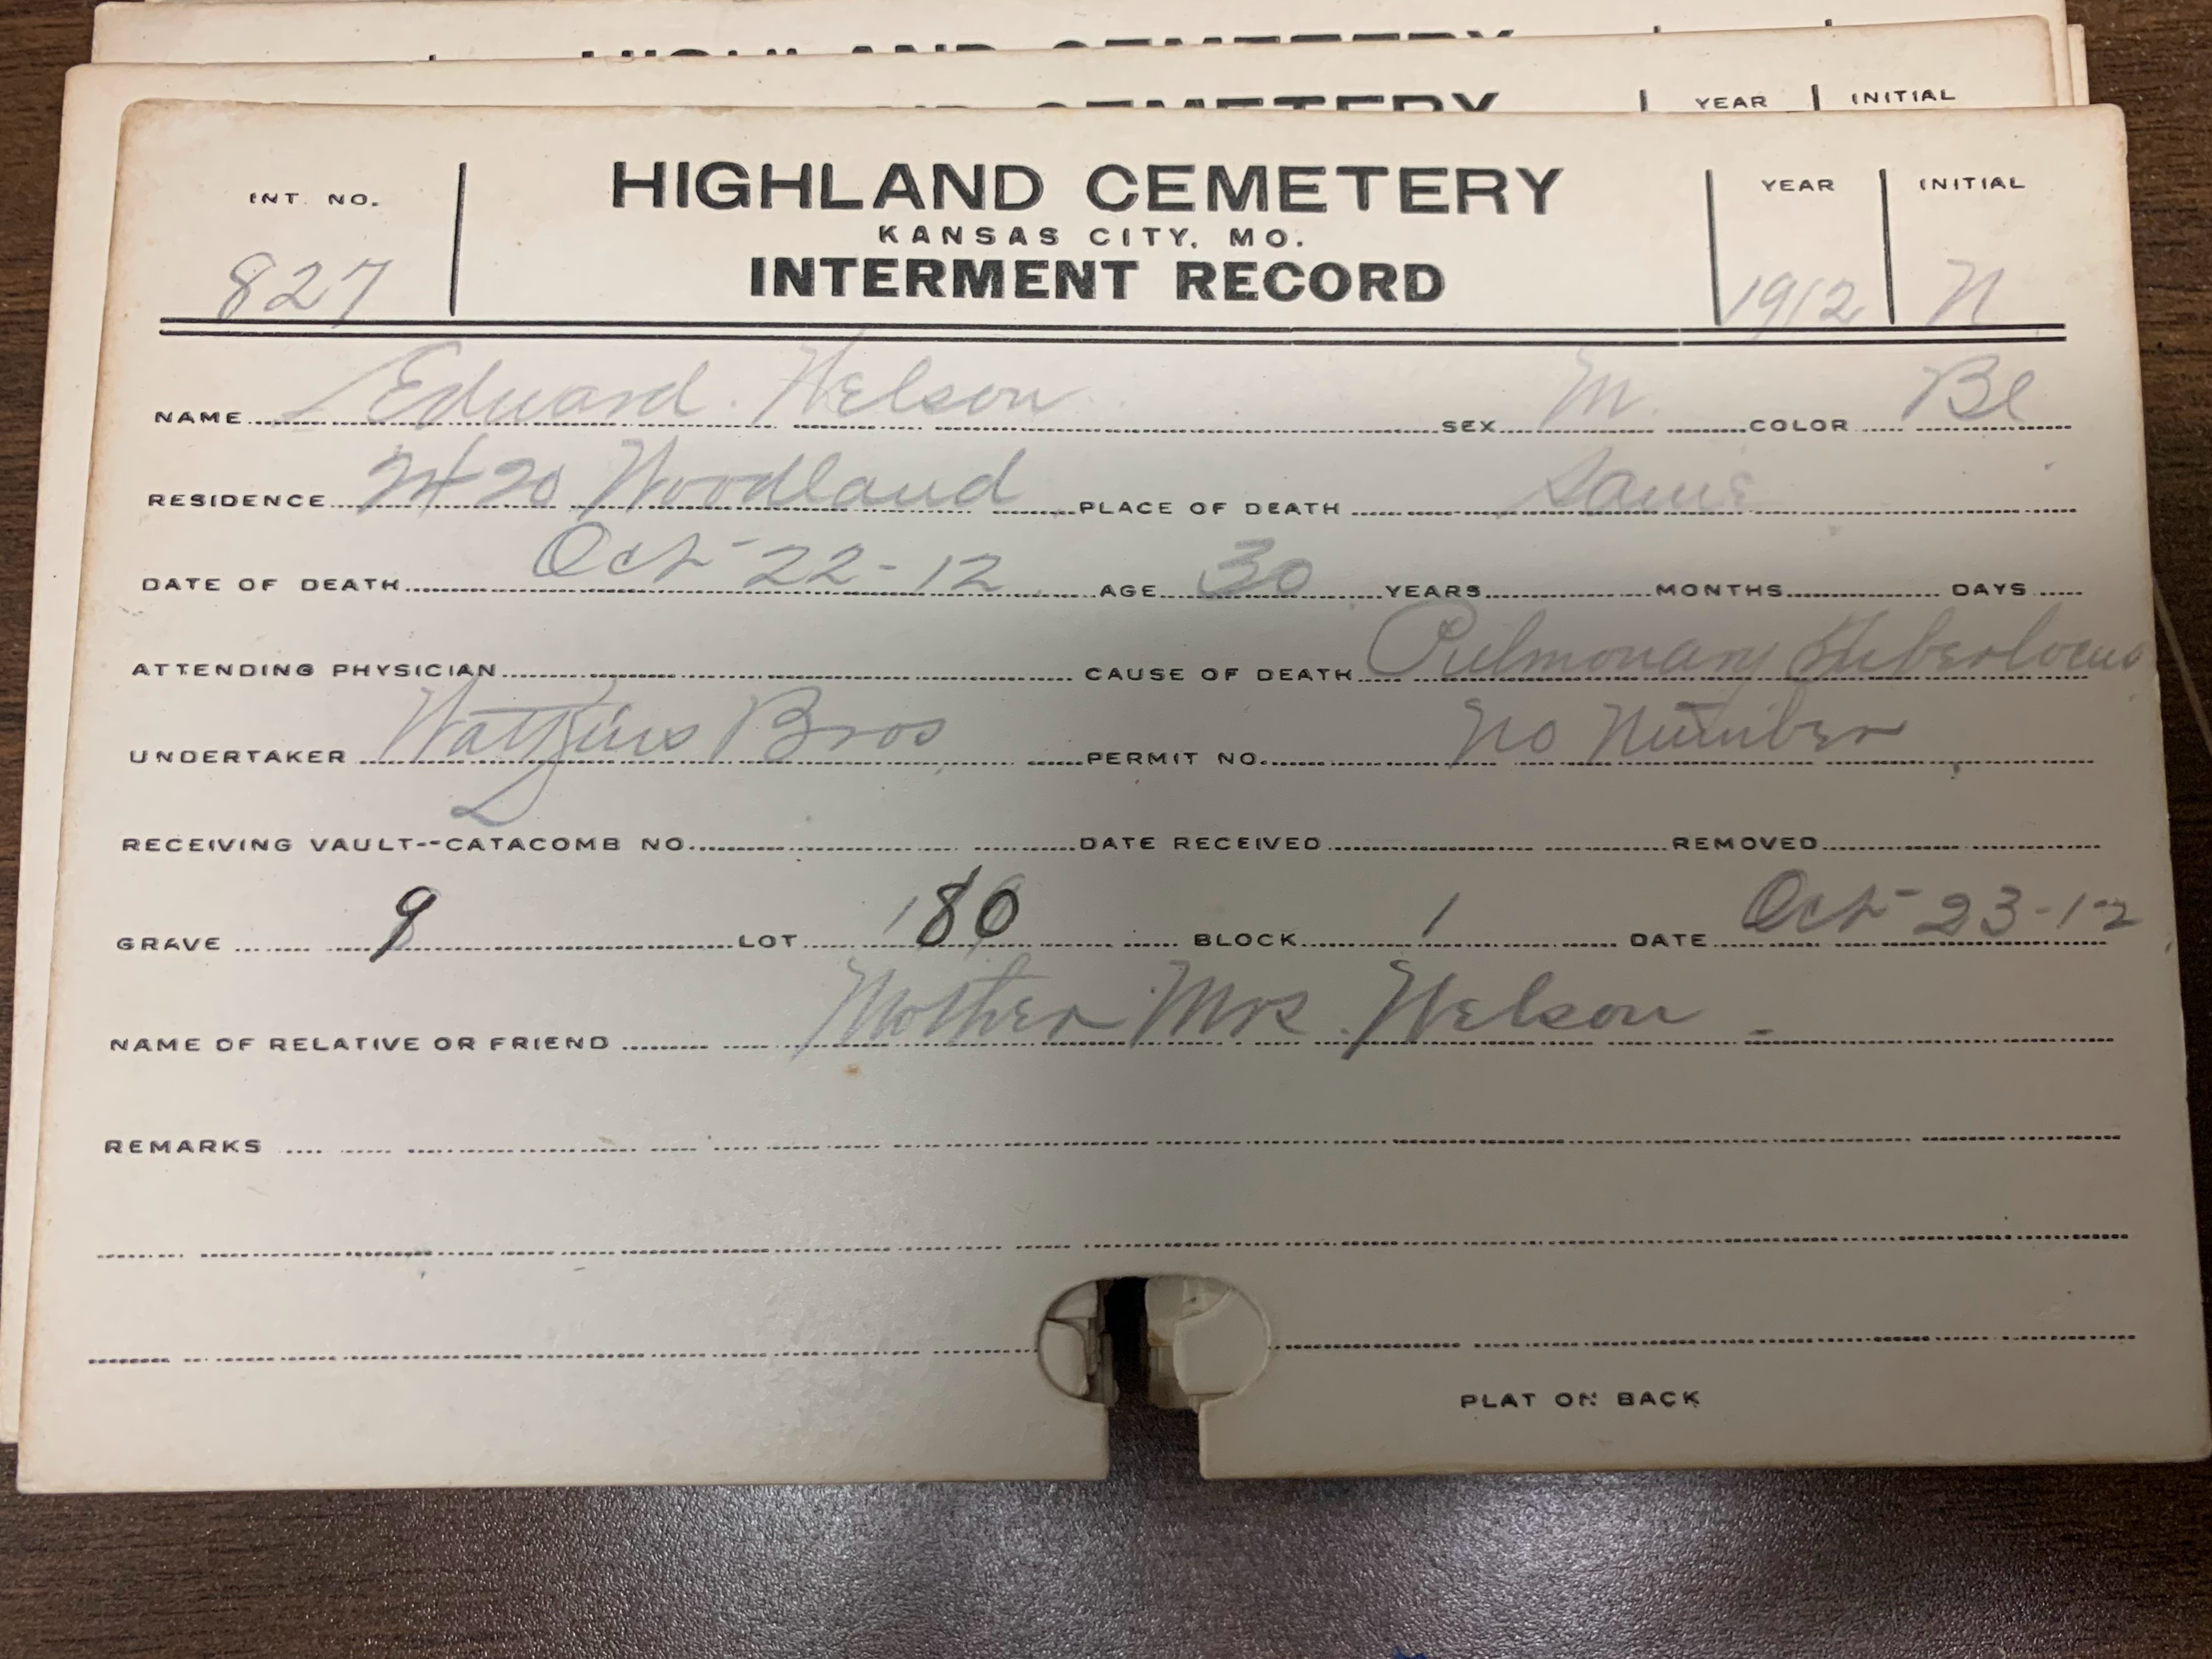 HIGHLAND CEMETERY
CEMETERY YEAR INITIAL
INT. NO. HIGHLAND CEMETERY YEAR INITIAL
KANSAS CITY, MO.
827 INTERMENT RECORD 1912 N
NAME Edward Nelson SEX M. COLOR Bl
RESIDENCE 2420 Woodland PLACE OF DEATH Same
DATE OF DEATH Oct-22-12 AGE 30 YEARS MONTHS DAYS
ATTENDING PHYSICIAN CAUSE OF DEATH Pulmonary Tuberlocus
UNDERTAKER Watkins Bros PERMIT NO. No Number
RECEIVING VAULT--CATACOMB NO. DATE RECEIVED REMOVED
GRAVE 9 LOT 180 BLOCK 1 DATE Oct-23-12
NAME OF RELATIVE OR FRIEND Mother Mrs. Nelson
REMARKS
PLAT ON BACK